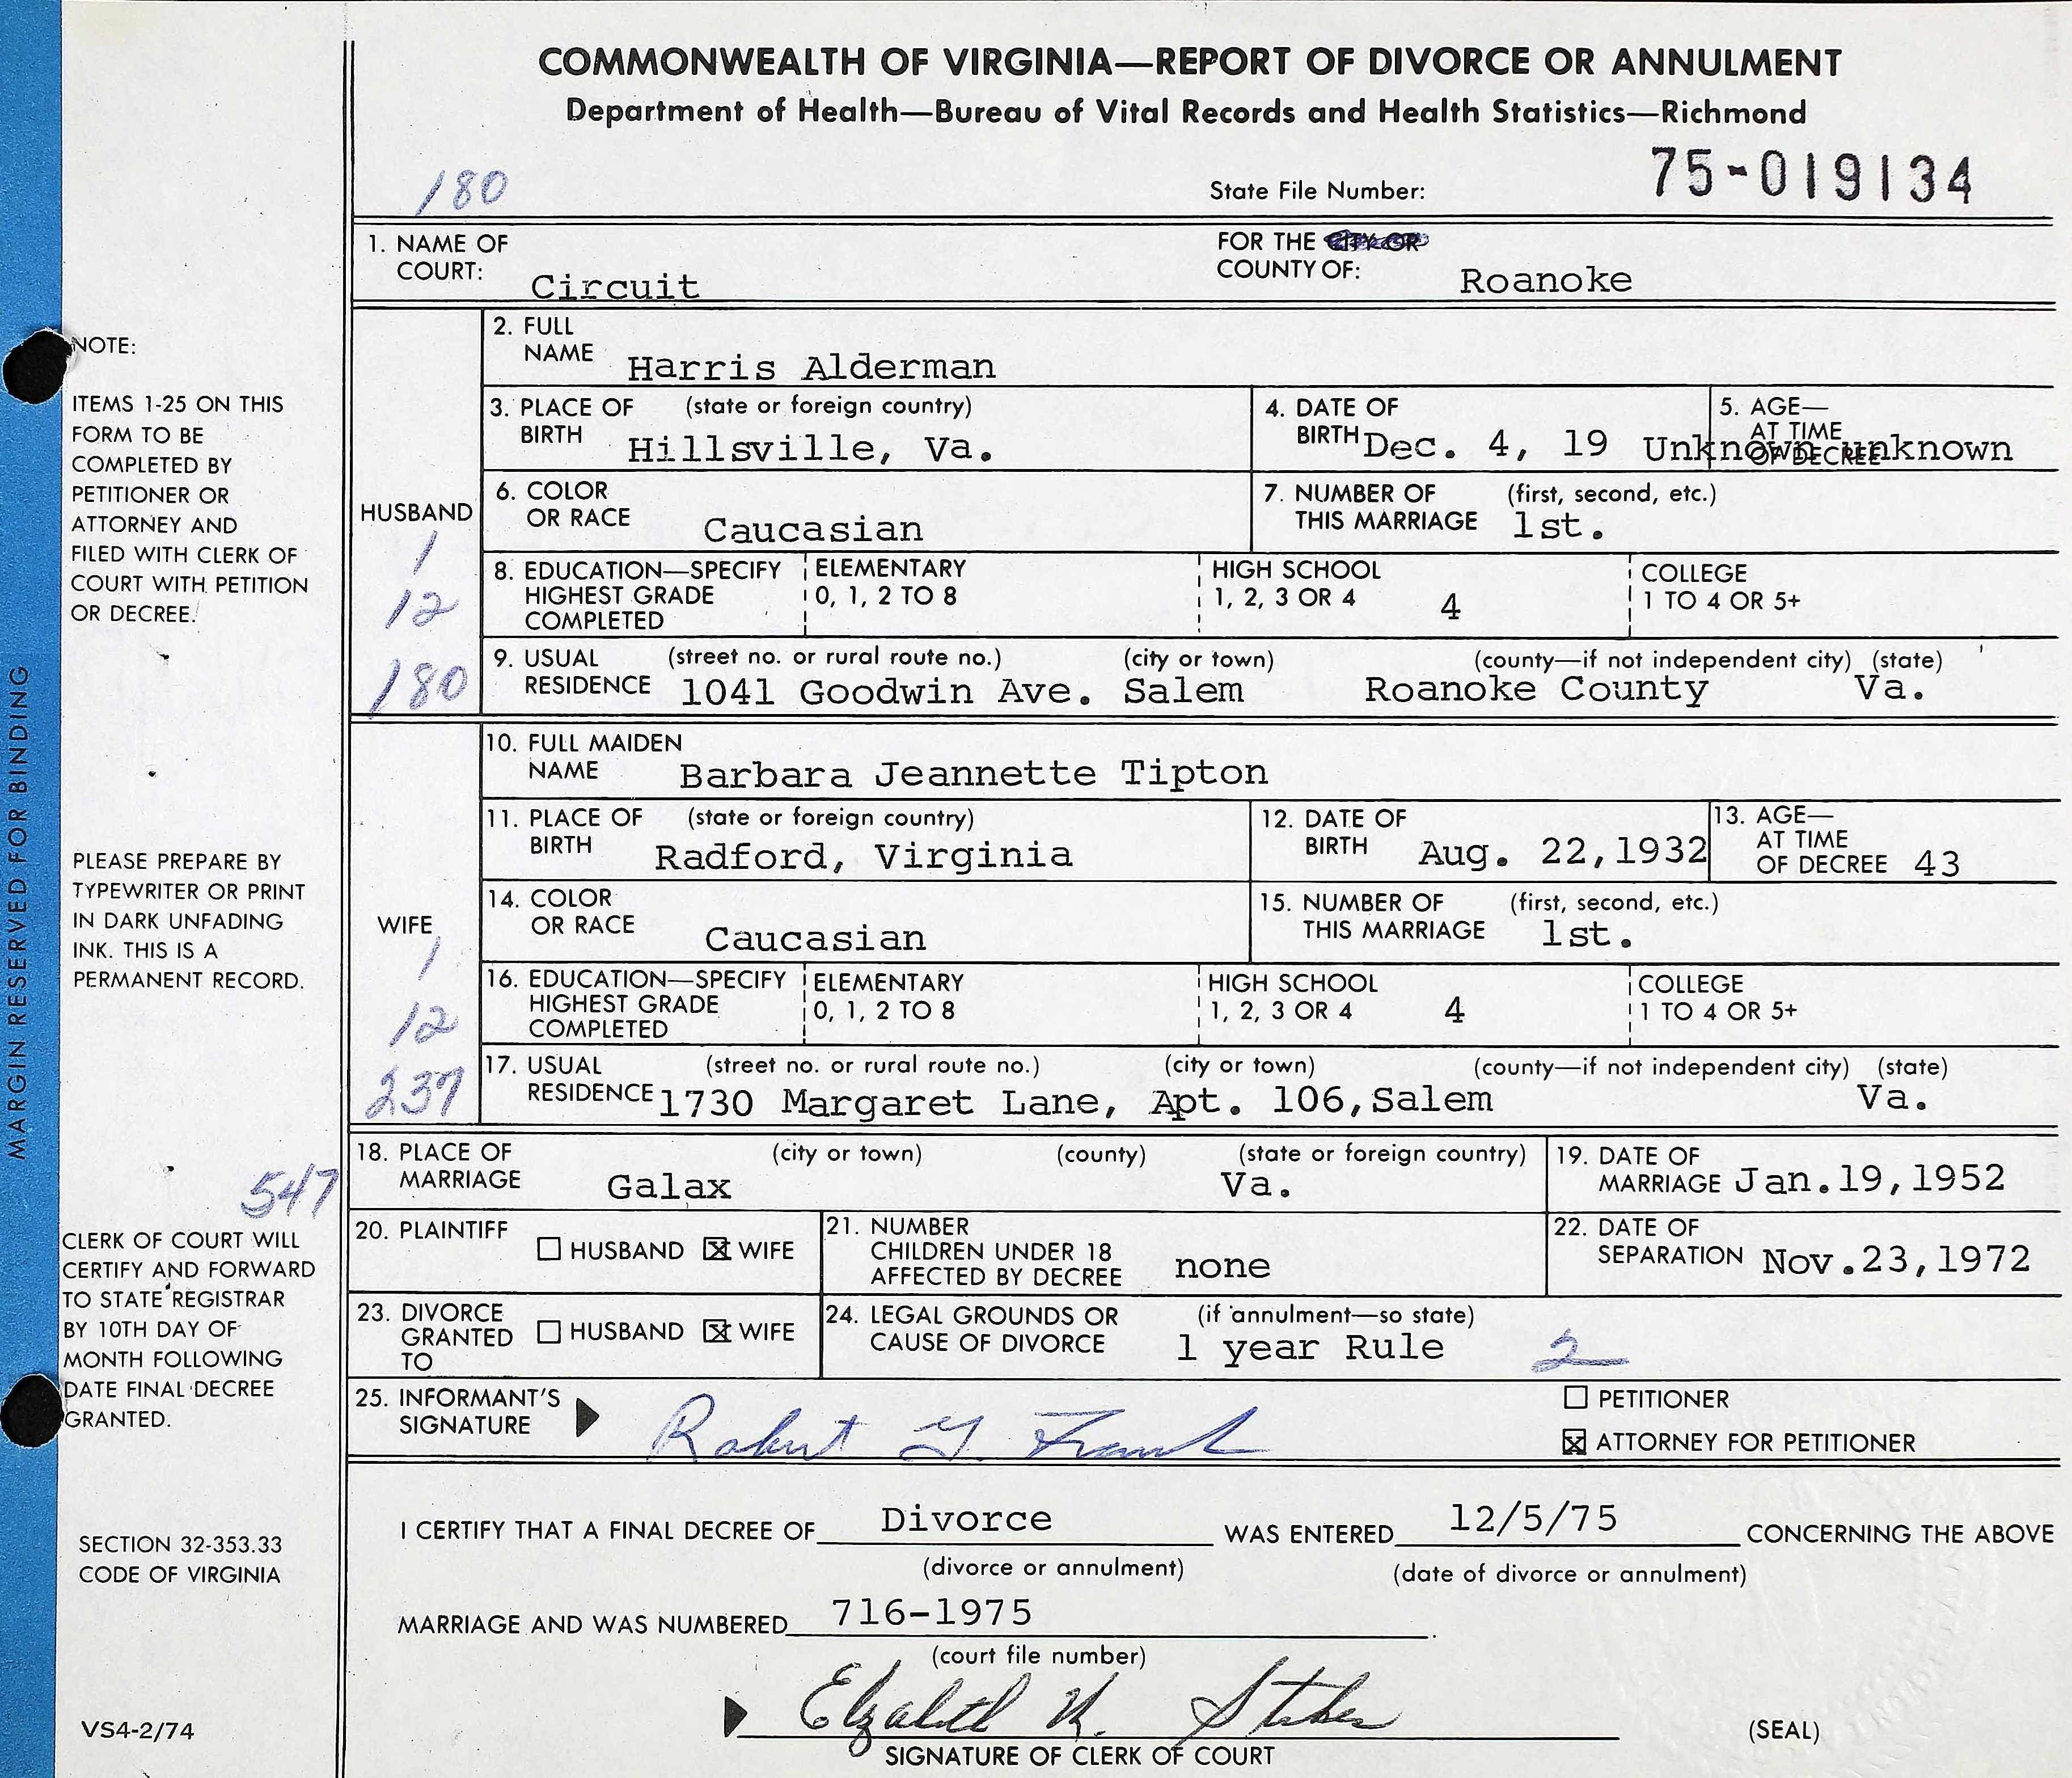 COMMONWEALTH OF VIRGINIA—REPORT OF DIVORCE OR ANNULMENT
Department of Health—Bureau of Vital Records and Health Statistics—Richmond
180
State File Number: 75-019134
1. NAME OF COURT: Circuit
FOR THE CITY OR COUNTY OF: Roanoke
HUSBAND
1
12
180
2. FULL NAME Harris Alderman
3. PLACE OF BIRTH (state or foreign country) Hillsville, Va.
4. DATE OF BIRTH Dec. 4, 19 Unknown
5. AGE—AT TIME OF DECREE unknown
6. COLOR OR RACE Caucasian
7. NUMBER OF THIS MARRIAGE (first, second, etc.) 1st.
8. EDUCATION—SPECIFY HIGHEST GRADE COMPLETED
ELEMENTARY 0, 1, 2 TO 8
HIGH SCHOOL 1, 2, 3 OR 4 4
COLLEGE 1 TO 4 OR 5+
9. USUAL RESIDENCE (street no. or rural route no.) (city or town) (county—if not independent city) (state)
1041 Goodwin Ave. Salem Roanoke County Va.
WIFE
1
12
237
10. FULL MAIDEN NAME Barbara Jeannette Tipton
11. PLACE OF BIRTH (state or foreign country) Radford, Virginia
12. DATE OF BIRTH Aug. 22,1932
13. AGE—AT TIME OF DECREE 43
14. COLOR OR RACE Caucasian
15. NUMBER OF THIS MARRIAGE (first, second, etc.) 1st.
16. EDUCATION—SPECIFY HIGHEST GRADE COMPLETED
ELEMENTARY 0, 1, 2 TO 8
HIGH SCHOOL 1, 2, 3 OR 4 4
COLLEGE 1 TO 4 OR 5+
17. USUAL RESIDENCE (street no. or rural route no.) (city or town) (county—if not independent city) (state)
1730 Margaret Lane, Apt. 106, Salem Va.
18. PLACE OF MARRIAGE (city or town) (county) (state or foreign country)
Galax Va.
19. DATE OF MARRIAGE Jan.19,1952
20. PLAINTIFF ☐ HUSBAND ☒ WIFE
21. NUMBER CHILDREN UNDER 18 AFFECTED BY DECREE none
22. DATE OF SEPARATION Nov.23,1972
23. DIVORCE GRANTED TO ☐ HUSBAND ☒ WIFE
24. LEGAL GROUNDS OR CAUSE OF DIVORCE (if annulment—so state) 1 year Rule 2
25. INFORMANT'S SIGNATURE Robert
☐ PETITIONER
☒ ATTORNEY FOR PETITIONER
I CERTIFY THAT A FINAL DECREE OF Divorce WAS ENTERED 12/5/75 CONCERNING THE ABOVE
(divorce or annulment) (date of divorce or annulment)
MARRIAGE AND WAS NUMBERED 716-1975
(court file number)
Elizabeth
SIGNATURE OF CLERK OF COURT
(SEAL)
NOTE:
ITEMS 1-25 ON THIS
FORM TO BE
COMPLETED BY
PETITIONER OR
ATTORNEY AND
FILED WITH CLERK OF
COURT WITH PETITION
OR DECREE.
PLEASE PREPARE BY
TYPEWRITER OR PRINT
IN DARK UNFADING
INK. THIS IS A
PERMANENT RECORD.
547
CLERK OF COURT WILL
CERTIFY AND FORWARD
TO STATE REGISTRAR
BY 10TH DAY OF
MONTH FOLLOWING
DATE FINAL DECREE
GRANTED.
SECTION 32-353.33
CODE OF VIRGINIA
VS4-2/74
MARGIN RESERVED FOR BINDING